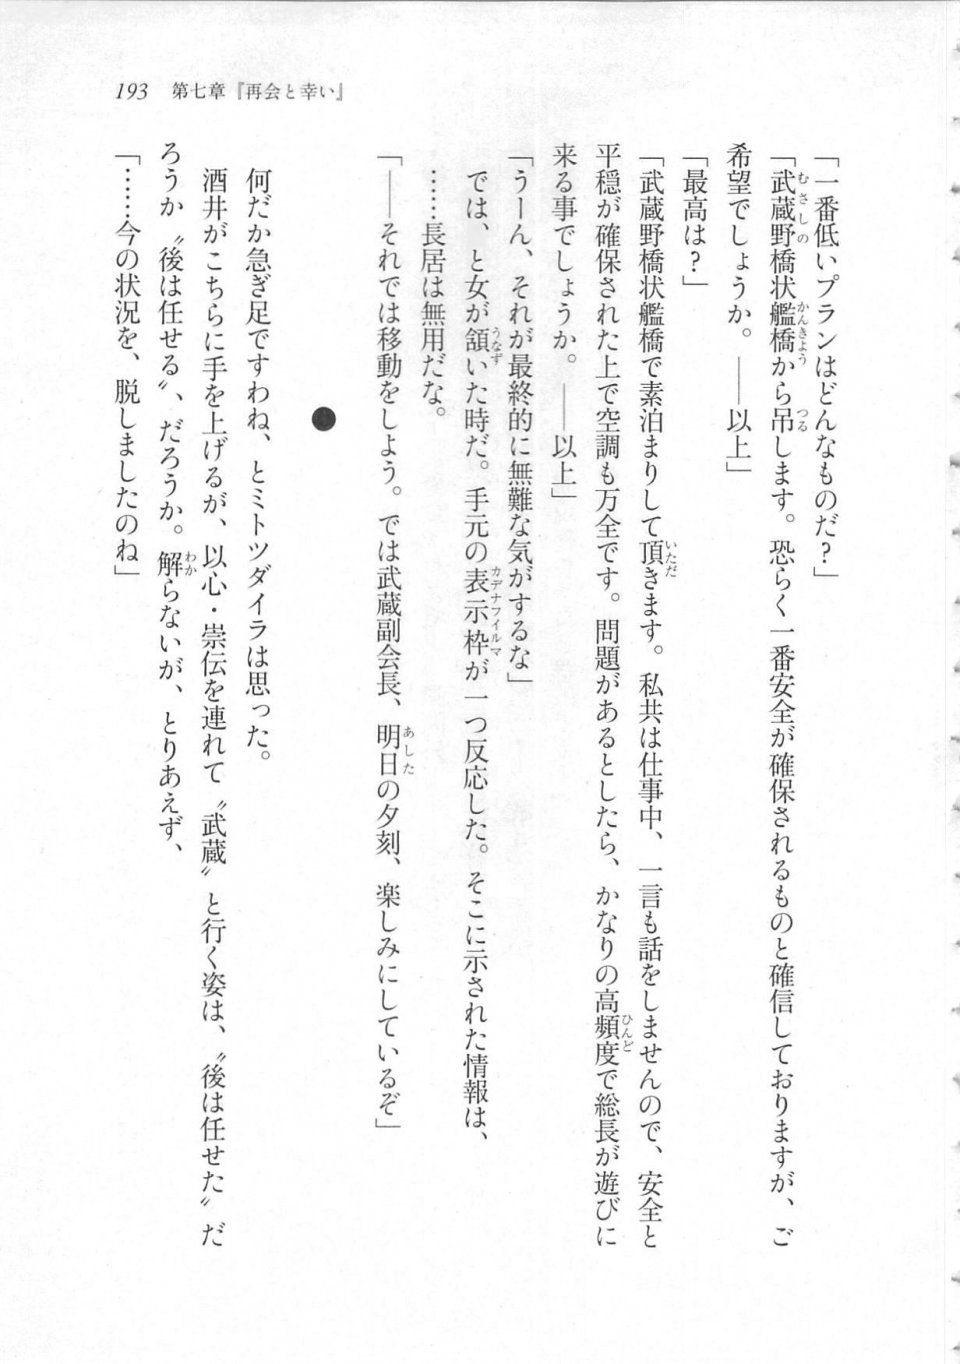 193 第七章『再会と幸い』
「一番低いプランはどんなものだ？」
「武蔵野橋状艦橋から吊します。恐らく一番安全が確保されるものと確信しておりますが、ご
希望でしょうか。――以上」
「最高は？」
「武蔵野橋状艦橋で素泊まりして頂きます。私共は仕事中、一言も話をしませんので、安全と
平穏が確保された上で空調も万全です。問題があるとしたら、かなりの高頻度で総長が遊びに
来る事でしょうか。――以上」
「うーん、それが最終的に無難な気がするな」
では、と女が頷いた時だ。手元の表示枠が一つ反応した。そこに示された情報は、
……長居は無用だな。
「――それでは移動をしよう。では武蔵副会長、明日の夕刻、楽しみにしているぞ」
●
何だか急ぎ足ですわね、とミトツダイラは思った。
酒井がこちらに手を上げるが、以心・崇伝を連れて〝武蔵〟と行く姿は、〝後は任せた〟だ
ろうか〝後は任せる〟、だろうか。解らないが、とりあえず、
「……今の状況を、脱しましたのね」